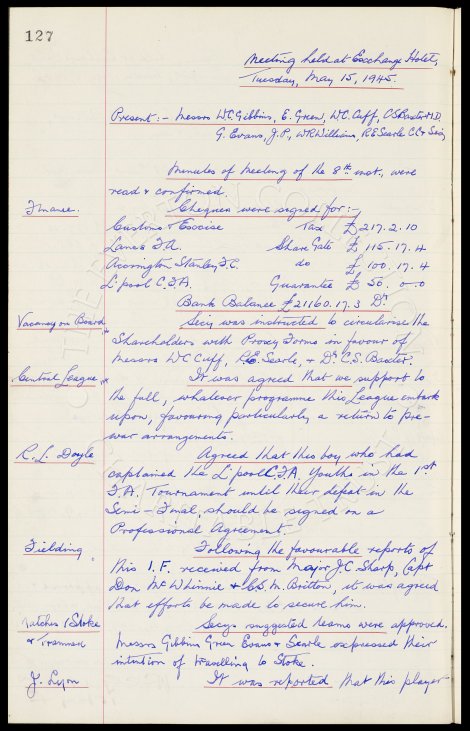 127
Meeting held at Exchange Hotel,
Tuesday, May 15, 1945.
Present :- Messrs W.C. Gibbins, E. Green, W.C. Cuff, C.S. Baxter M.D.
G. Evans, J.P., W.R. Williams, R.E. Searle C.C. & Secy
Minutes of meeting of the 8th inst., were
read & confirmed.
Finance. Cheques were signed for :-
Customs & Excise Tax £217.2.10
Lancs F.A. Share Gate £115.17.4
Accrington Stanley F.C. do £100.17.4
L'pool C.F.A. Guarantee £50.0.0
Bank Balance £21160.17.3 Dr.
Vacancy on Board Secy was instructed to circularise the
Shareholders with Proxy Forms in favour of
Messrs W.C. Cuff, R.E. Searle, & Dr. C.S. Baxter.
Central League It was agreed that we support to
the full, whatever programme this League embark
upon, favouring particularly a return to pre-
war arrangements.
R. L. Doyle Agreed that this boy who had
captained the L'pool C.F.A. Youth in the 1st
F.A. Tournament until their defeat in the
Semi-Final, should be signed on a
Professional Agreement.
Fielding Following the favourable reports of
this I.F. received from Major J.C. Sharp, Capt
Don McWhinnie & C.S. M. Britton, it was agreed
that efforts be made to secure him.
Matches / Stoke Secys suggested teams were approved.
& Tranmere Messrs Gibbins Green Evans & Searle expressed their
intention of travelling to Stoke.
J. Lyon It was reported that this player